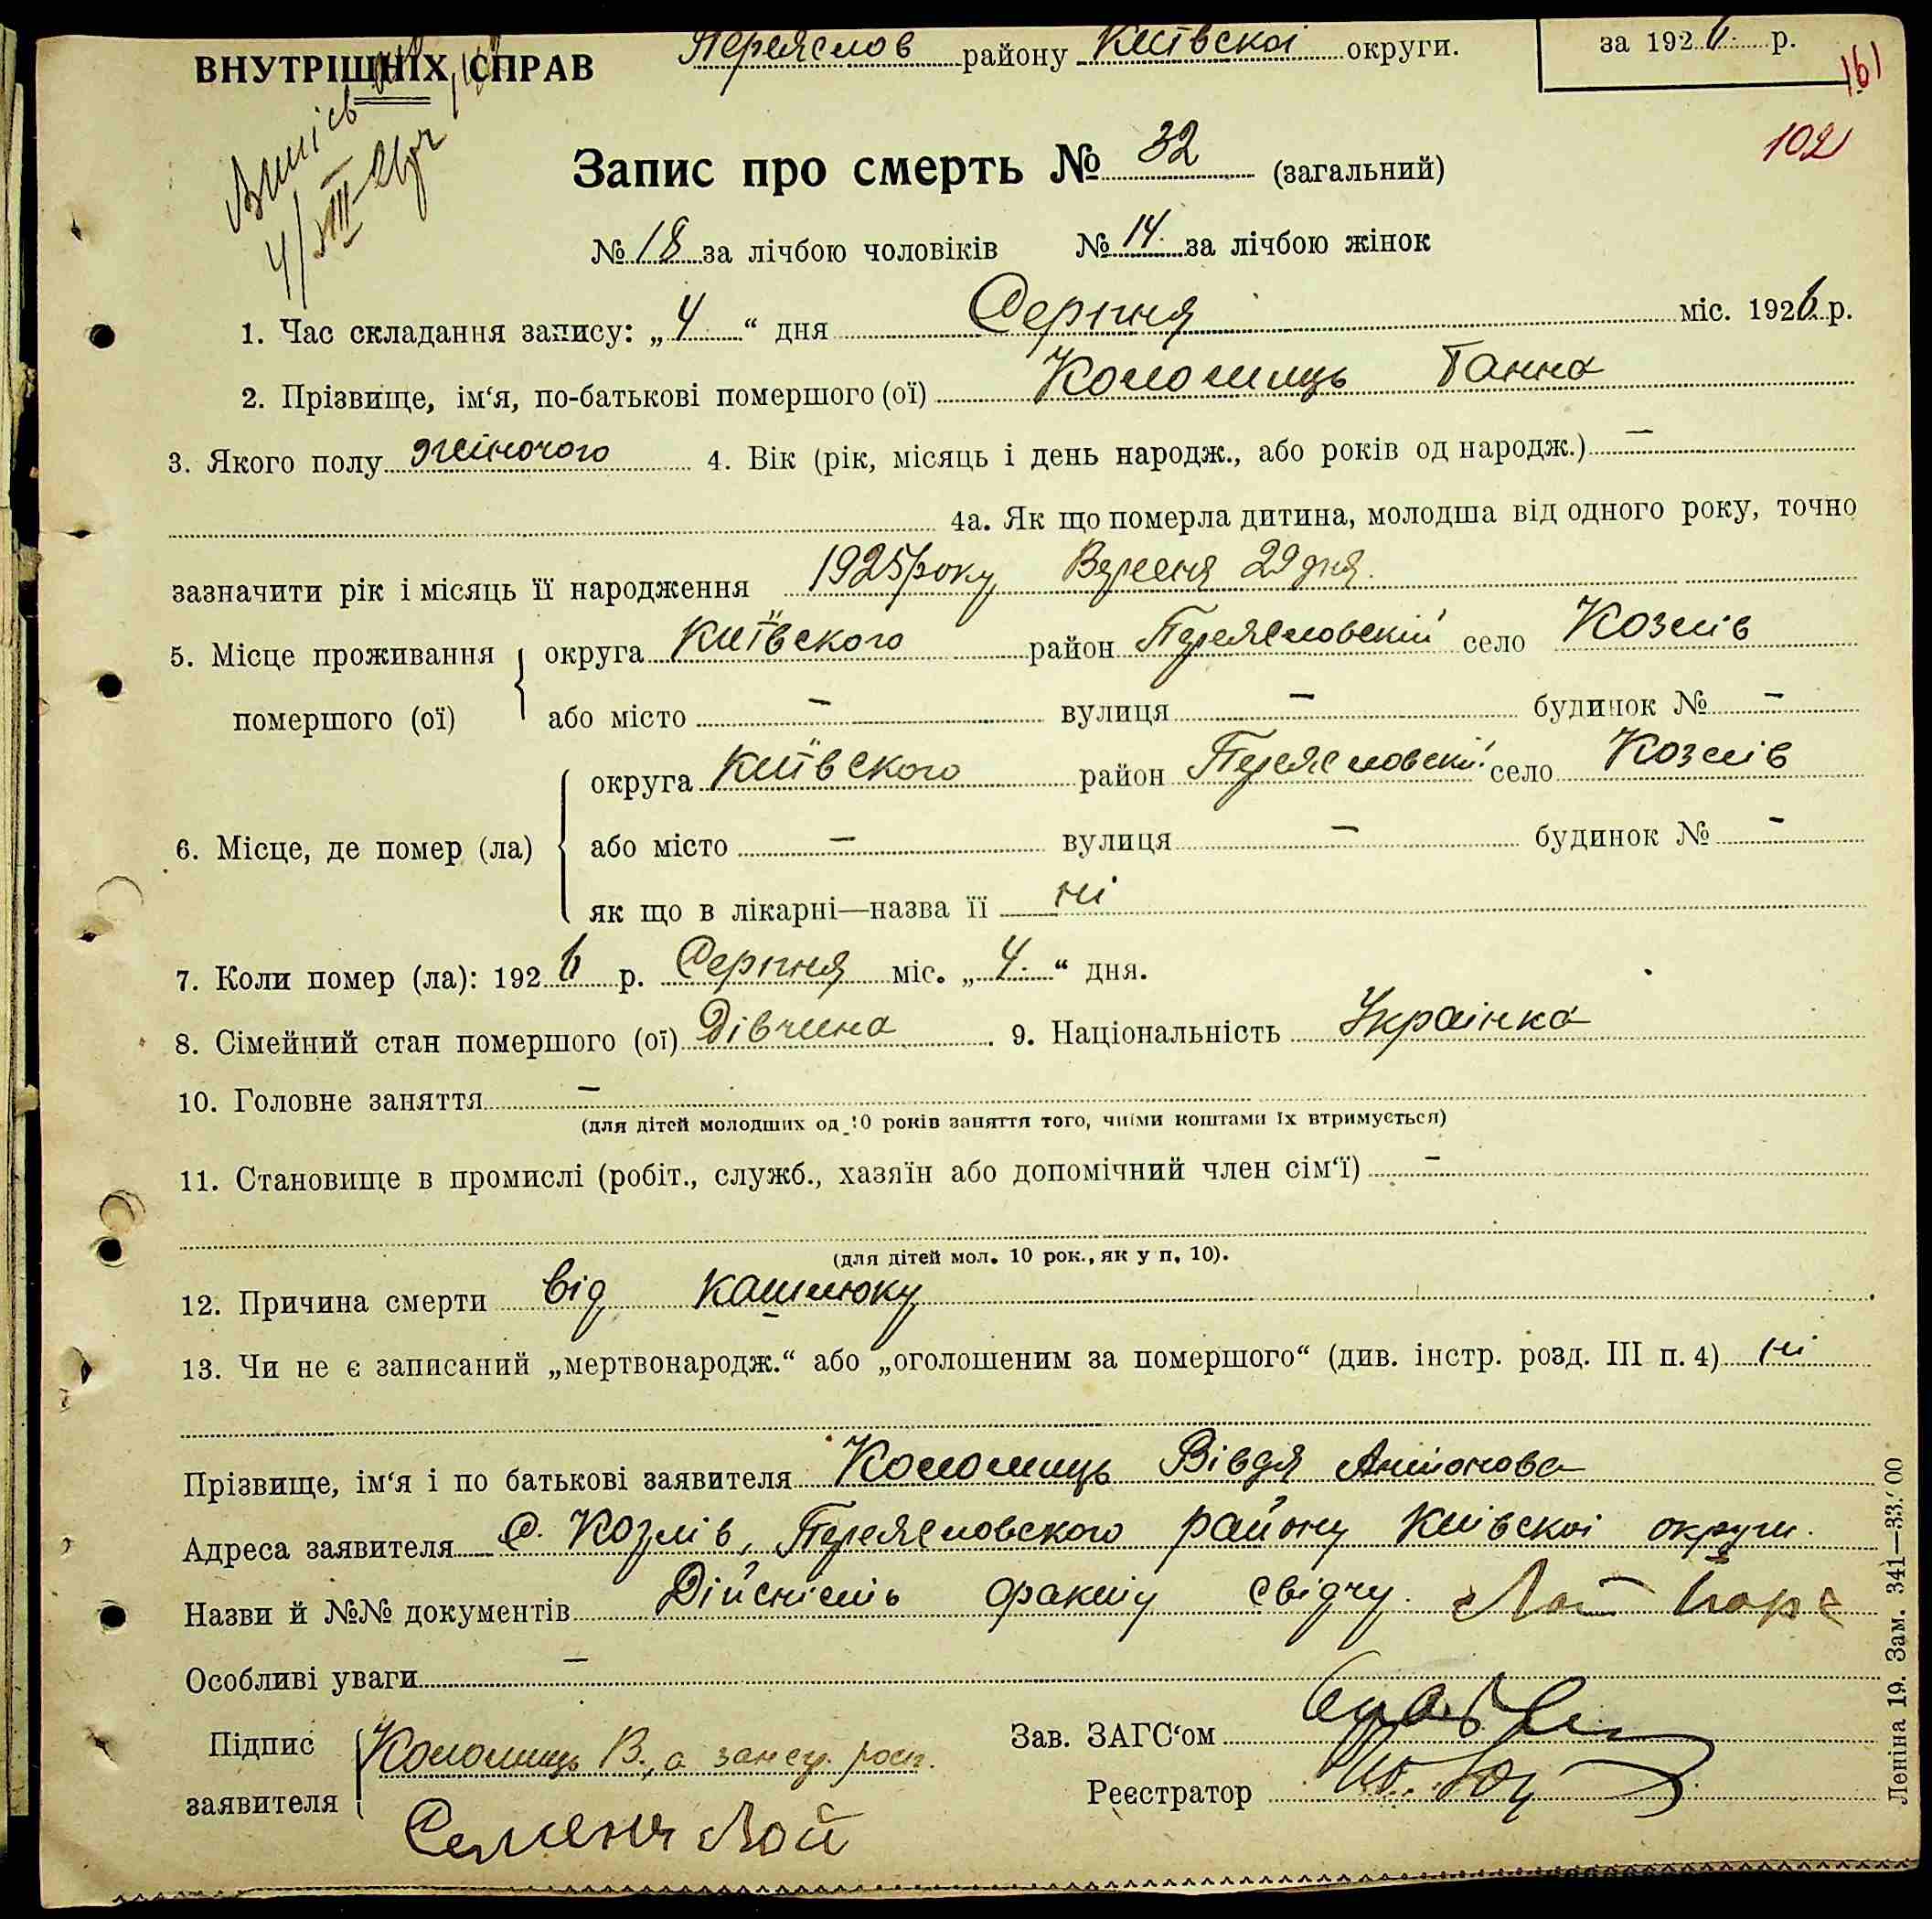 ВНУТРІШНІХ СПРАВ Переяслов району Київскоі округи. за 1926 р.
161
102
4/VIII
Запис про смерть № 32 (загальний)
№ 18 за лічбою чоловіків № 14. за лічбою жінок
1. Час складання запису: „ 4 “ дня Серпня міс. 1926 р.
2. Прізвище, ім‘я, по-батькові помершого (ої) Коломиць Ганна
3. Якого полу жіночого 4. Вік (рік, місяць і день народж., або років од народж.) —
4а. Як що померла дитина, молодша від одного року, точно
зазначити рік і місяць її народження 1925 року Вересня 29 дня.
5. Місце проживання округа Київского район Переясловскій село Козлів
помершого (ої) або місто — вулиця — будинок № —
округа Київского район Переясловскій село Козлів
6. Місце, де помер (ла) або місто — вулиця — будинок № —
як що в лікарні—назва її ні
7. Коли помер (ла): 1926 р. Серпня міс. „ 4. “ дня.
8. Сімейний стан помершого (ої) Дівчина. 9. Національність Украінка
10. Головне заняття —
(для дітей молодших од 10 років заняття того, чиїми коштами їх втримується)
11. Становище в промислі (робіт., служб., хазяїн або допомічний член сім‘ї) —
(для дітей мол. 10 рок., як у п. 10).
12. Причина смерти від кашлюку
13. Чи не є записаний „мертвонародж.“ або „оголошеним за помершого“ (див. інстр. розд. III п. 4) ні
Прізвище, ім‘я і по батькові заявителя Коломиць Вівдя Антонова
Адреса заявителя с. Козлів, Переясловского району Київскоі округи.
Назви й №№ документів Дійсність факту свідчу.
Особливі уваги —
Підпис заявителя Коломиць В., а за неї росп.
Семен Лой
Зав. ЗАГС‘ом
Реєстратор
Леніна 19. Зам. 341—33.' 00